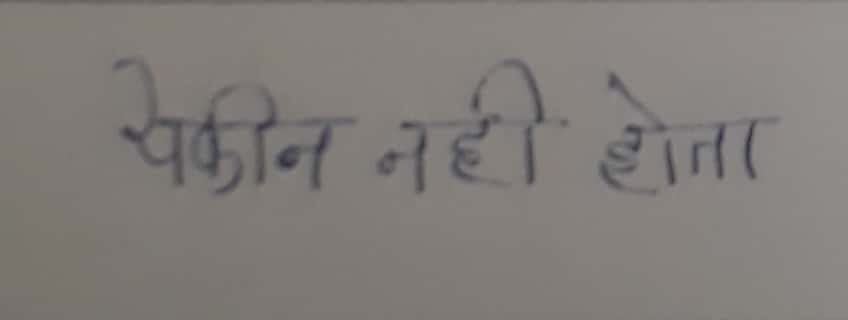 येकीन नही होता